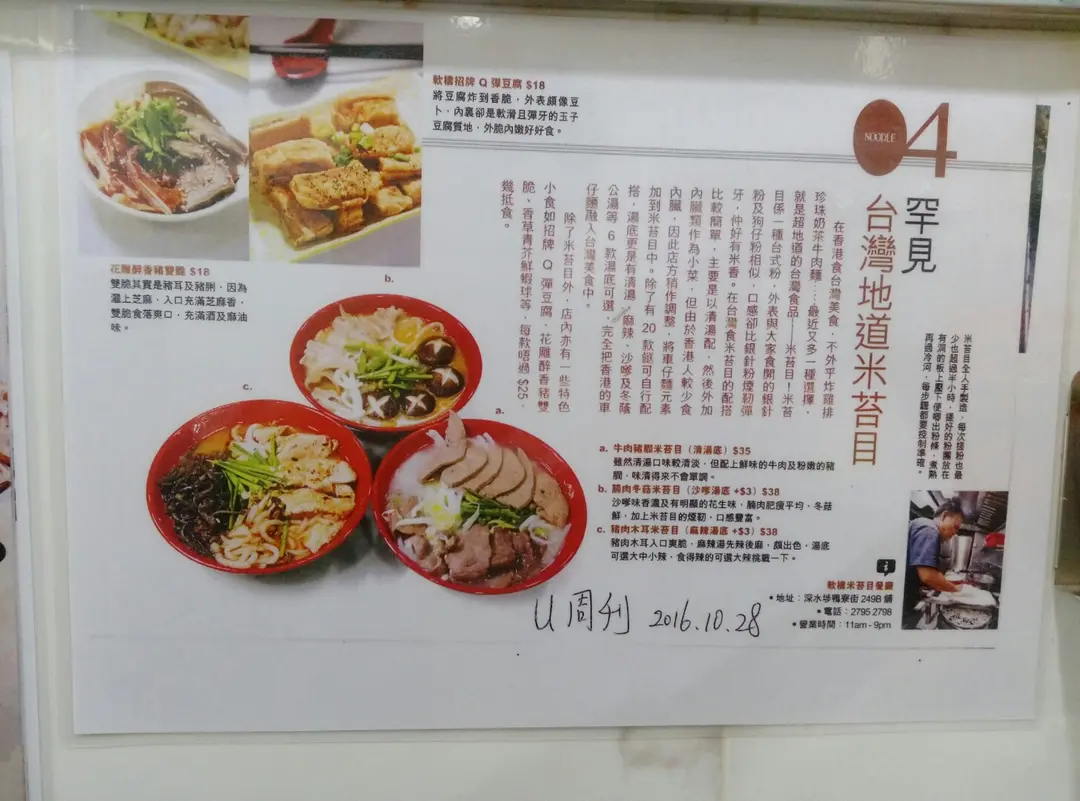 軟橋招牌 Q 彈豆腐 $18
將豆腐炸到香脆，外表頗像豆
卜，內裏卻是軟滑且彈牙的玉子
豆腐質地，外脆內嫩好好食。
NOODLE
04
罕見
台灣地道米苔目
在香港食台灣美食，不外乎炸雞排
珍珠奶茶牛肉麵…最近又多一種選擇，
就是超地道的台灣食品——米苔目！米苔
目係一種台式粉，外表與大家食開的銀針
粉及狗仔粉相似，口感卻比銀針粉煙韌彈
牙，仲好有米香。在台灣食米苔目的配搭
比較簡單，主要是以清湯配，然後外加
內臟類作為小菜，但由於香港人較少食
內臟，因此店方稍作調整，將車仔麵元素
加到米苔目中。除了有 20 款餸可自行配
搭，湯底更是有清湯、麻辣、沙嗲及冬蔭
公湯等 6 款湯底可選，完全把香港的車
仔麵融入台灣美食中。
除了米苔目外，店內亦有一些特色
小食如招牌 Q 彈豆腐、花雕醉香豬雙
脆、香草青芥鮮蝦球等，每款唔過 $25，
幾抵食。
米苔目全人手製造，每次搓粉也最
少也超過半小時，搓好的粉團放在
有洞的板上壓下便唧出粉條，煮熟
再過冷河，每步驟都要控制準確。
花雕醉香豬雙脆 $18
雙脆其實是豬耳及豬脷，因為
灑上芝麻，入口充滿芝麻香，
雙脆食落爽口，充滿酒及麻油
味。
b.
c.
a.
a. 牛肉豬膶米苔目（清湯底）$35
雖然清湯口味較清淡，但配上鮮味的牛肉及粉嫩的豬
膶，味清得來不會單調。
b. 腩肉冬菇米苔目（沙嗲湯底 +$3）$38
沙嗲味香濃及有明顯的花生味，腩肉肥瘦平均，冬菇
鮮，加上米苔目的煙韌，口感豐富。
c. 豬肉木耳米苔目（麻辣湯底 +$3）$38
豬肉木耳入口爽脆，麻辣湯先辣後麻，頗出色，湯底
可選大中小辣，食得辣的可選大辣挑戰一下。
i
軟橋米苔目餐廳
• 地址：深水埗鴨寮街 249B 舖
• 電話：2795 2798
• 營業時間：11am - 9pm
U 周刊 2016.10.28